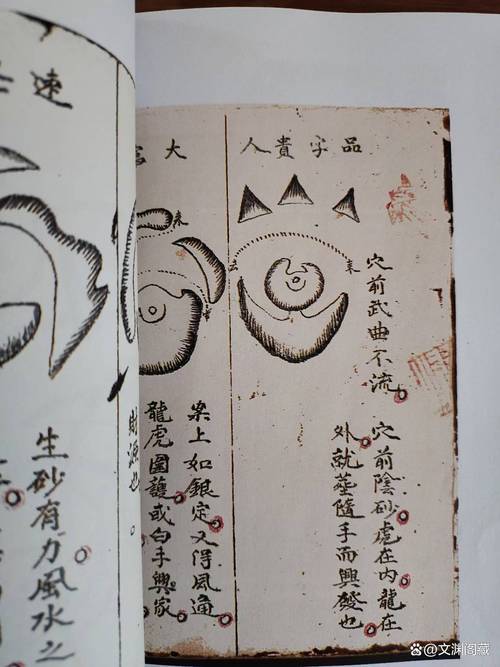 品字貴人
來
去
穴前武曲不流
穴前陰砂虎在內龍在
外就塟隨手而興發也
大富
來
案上如銀定又得風通
龍虎圍護或白手興家
財源也
速
生砂有力風水之
文渊阁藏